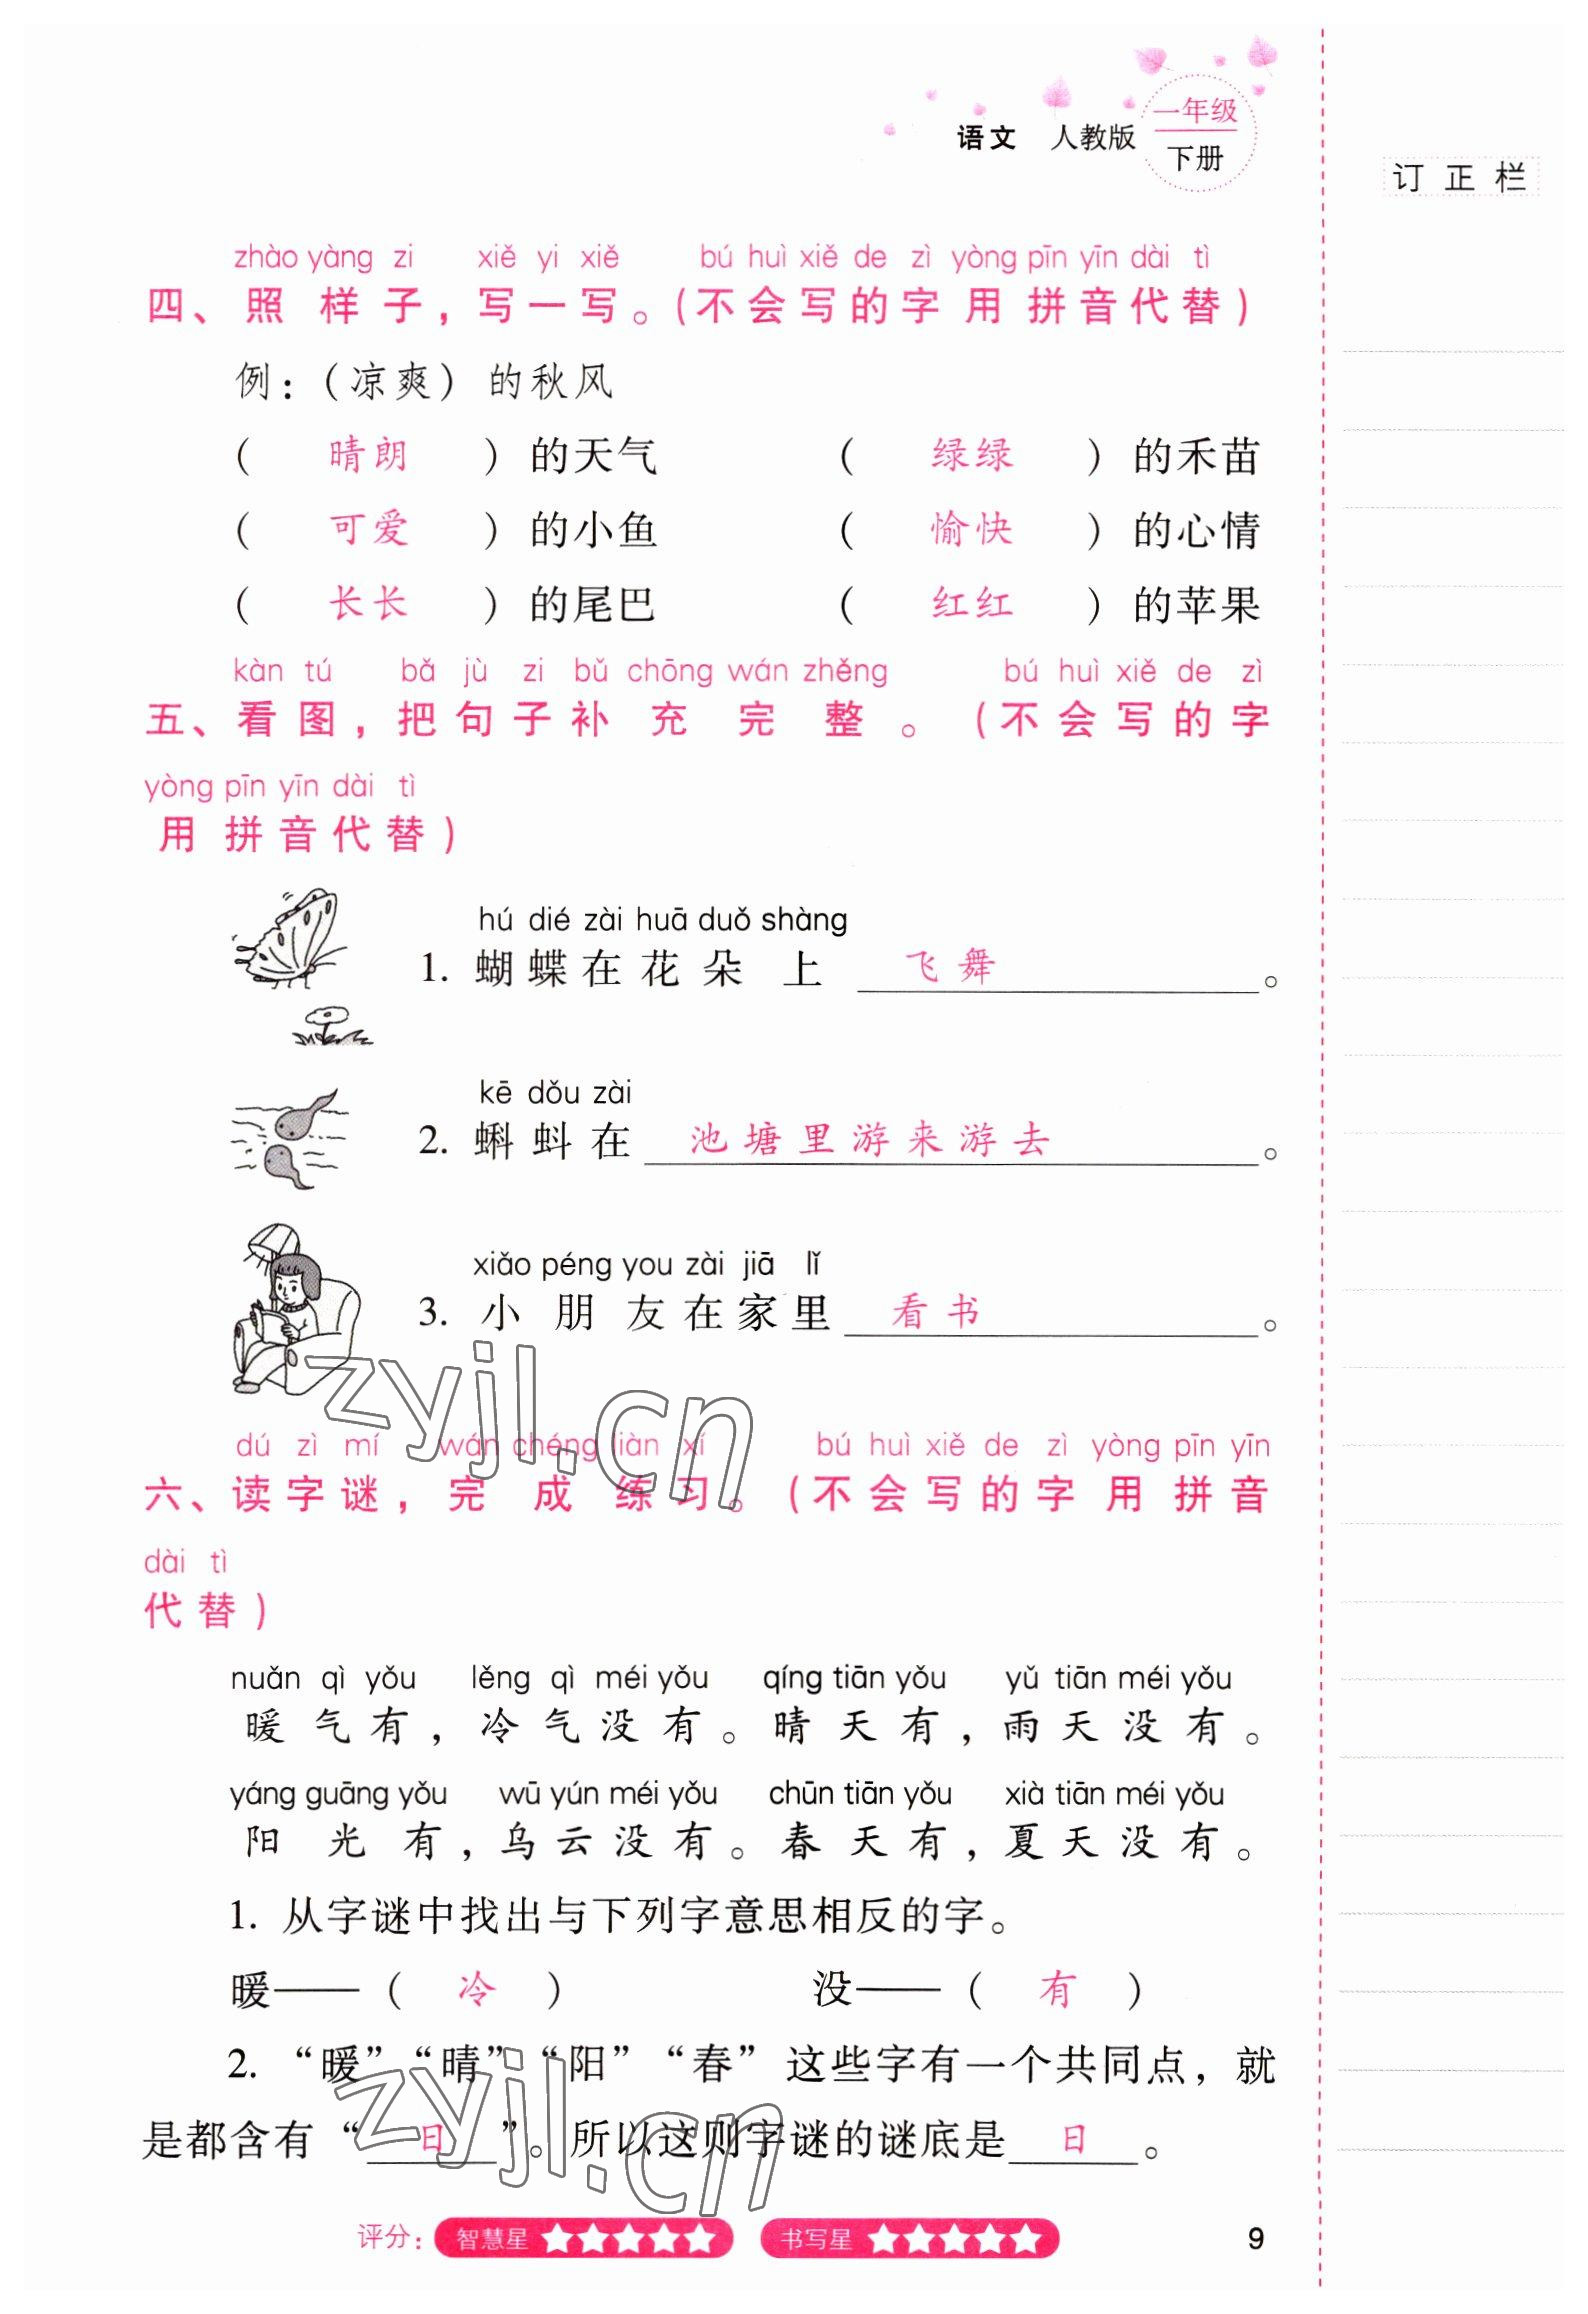 语文 人教版 一年级
下册
订正栏
zhào yàng zi xiě yi xiě bú huì xiě de zì yòng pīn yīn dài tì
四、照样子，写一写。(不会写的字用拼音代替)
例：（凉爽）的秋风
（ 晴朗 ）的天气 （ 绿绿 ）的禾苗
（ 可爱 ）的小鱼 （ 愉快 ）的心情
（ 长长 ）的尾巴 （ 红红 ）的苹果
kàn tú bǎ jù zi bǔ chōng wán zhěng bú huì xiě de zì
五、看图，把句子补充完整。(不会写的字
yòng pīn yīn dài tì
用拼音代替)
hú dié zài huā duǒ shàng
1. 蝴蝶在花朵上 飞舞 。
kē dǒu zài
2. 蝌蚪在 池塘里游来游去 。
xiǎo péng you zài jiā lǐ
3. 小朋友在家里 看书 。
dú zì mí wán chéng liàn xí bú huì xiě de zì yòng pīn yīn
六、读字谜，完成练习。(不会写的字用拼音
dài tì
代替)
nuǎn qì yǒu lěng qì méi yǒu qíng tiān yǒu yǔ tiān méi yǒu
暖气有，冷气没有。晴天有，雨天没有。
yáng guāng yǒu wū yún méi yǒu chūn tiān yǒu xià tiān méi yǒu
阳光有，乌云没有。春天有，夏天没有。
1. 从字谜中找出与下列字意思相反的字。
暖——（ 冷 ） 没——（ 有 ）
2. “暖”“晴”“阳”“春”这些字有一个共同点，就
是都含有“ 日 ”。所以这则字谜的谜底是 日 。
评分： 智慧星 ☆☆☆☆☆ 书写星 ☆☆☆☆☆ 9
zyjl.cn
zyjl.cn